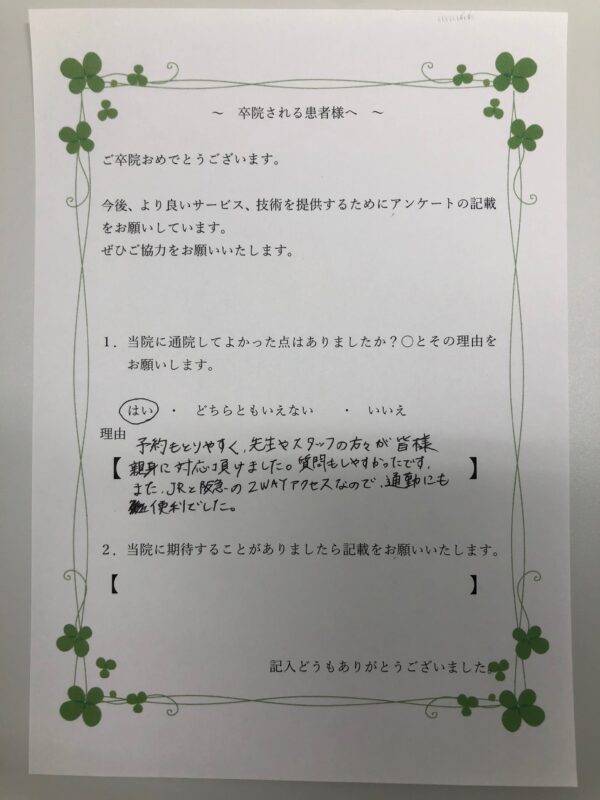 ～ 卒院される患者様へ ～
ご卒院おめでとうございます。
今後、より良いサービス、技術を提供するためにアンケートの記載
をお願いしています。
ぜひご協力をお願いいたします。
１．当院に通院してよかった点はありましたか？○とその理由を
お願いします。
はい ・ どちらともいえない ・ いいえ
理由
予約もとりやすく、先生やスタッフの方々が皆様
【親身に対応頂けました。質問もしやすかったです。】
また、JRと阪急の2WAYアクセスなので、通勤にも
便利でした。
２．当院に期待することがありましたら記載をお願いいたします。
【 】
記入どうもありがとうございました。